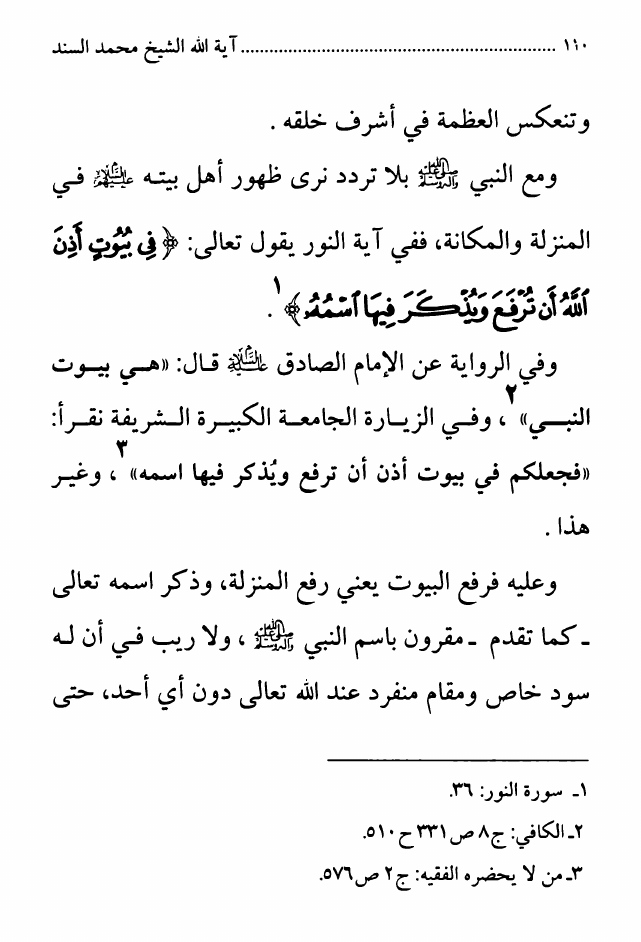 ١١٠ ................................................................. آية الله الشيخ محمد السند
وتنعكس العظمة في أشرف خلقه .
ومع النبي ﷺ بلا تردد نرى ظهور أهل بيته عليهم السلام في
المنزلة والمكانة، ففي آية النور يقول تعالى: ﴿فِي بُيُوتٍ أَذِنَ
ٱللَّهُ أَن تُرۡفَعَ وَيُذۡكَرَ فِيهَا ٱسۡمُهُۥ﴾١ .
وفي الرواية عن الإمام الصادق عليه السلام قال: «هي بيوت
النبي»٢ ، وفي الزيارة الجامعة الكبيرة الشريفة نقرأ:
«فجعلكم في بيوت أذن أن ترفع ويُذكر فيها اسمه»٣ ، وغير
هذا .
وعليه فرفع البيوت يعني رفع المنزلة، وذكر اسمه تعالى
ـ كما تقدم ـ مقرون باسم النبي ﷺ ، ولا ريب في أن له
سود خاص ومقام منفرد عند الله تعالى دون أي أحد، حتى
١ـ سورة النور: ٣٦.
٢ـ الكافي: ج٨ ص٣٣١ ح٥١٠.
٣ـ من لا يحضره الفقيه: ج٢ ص٥٧٦.